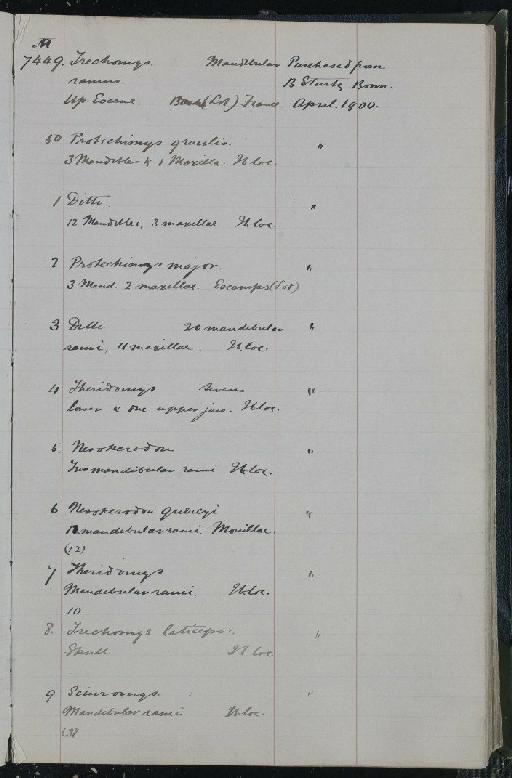 M
7449. Trechomys Mandibular Purchased from
ramus B Sturtz Bonn.
Up Eocene Bach (Lot) France April. 1900.
50 Protechimys gracilis "
3 Mandible & 1 Maxilla. Ib loc.
1 Ditto. "
12 Mandibles, 3 maxillae Ib loc
2 Protechimys major "
3 Mand. 2 maxillae. Escamps (Lot)
3 Ditto 20 mandibular "
rami, 11 maxillae. Ib loc.
4 Theridomys Seven "
lower & one upper jaw. Ib loc.
5. Nesokerodon "
Two mandibular rami Ib loc.
6 Nesokerodon quercyi "
12 mandibular rami. Mouillac.
(12)
7 Theridomys "
Mandibular rami. Ib loc.
10
8. Trechomys laticeps. "
Skull Ib loc
9 Sciuromys. "
Mandibular rami Ib loc.
(3)